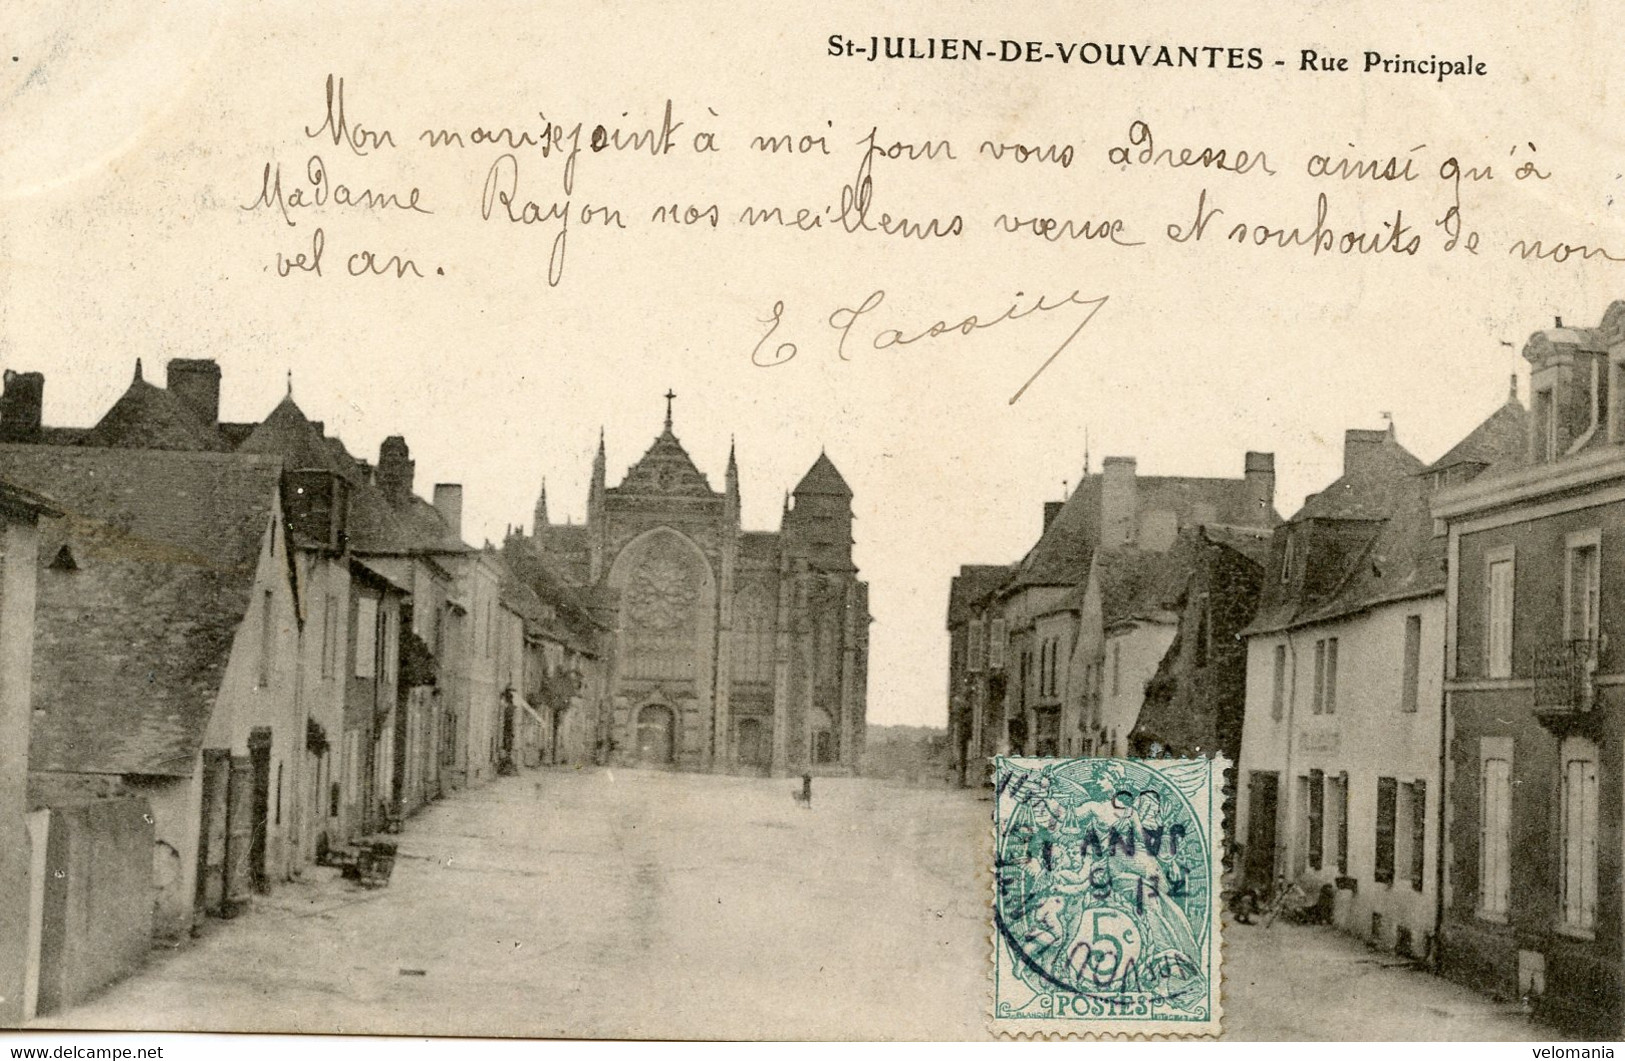 St-JULIEN-DE-VOUVANTES - Rue Principale
Mon mari se joint à moi pour vous adresser ainsi qu'à
Madame Rayon nos meilleurs vœux et souhaits de nou
vel an.
E
JANV
5c
POSTES
www.delcampe.net
velomania